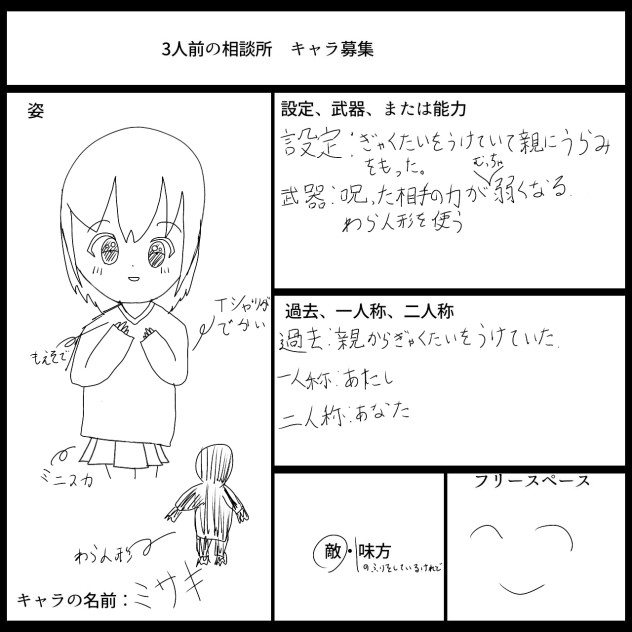 3人前の相談所　キャラ募集
姿
Tシャツが
でかい
もえそで
ミニスカ
わら人形
キャラの名前：ミサキ
設定、武器、または能力
設定：ぎゃくたいをうけていて親にうらみ
をもった。
むっちゃ
武器：呪った相手の力が弱くなる.
わら人形を使う
過去、一人称、二人称
過去：親からぎゃくたいをうけていた.
一人称：あたし
二人称：あなた
敵・味方
のふりをしているけれど
フリースペース